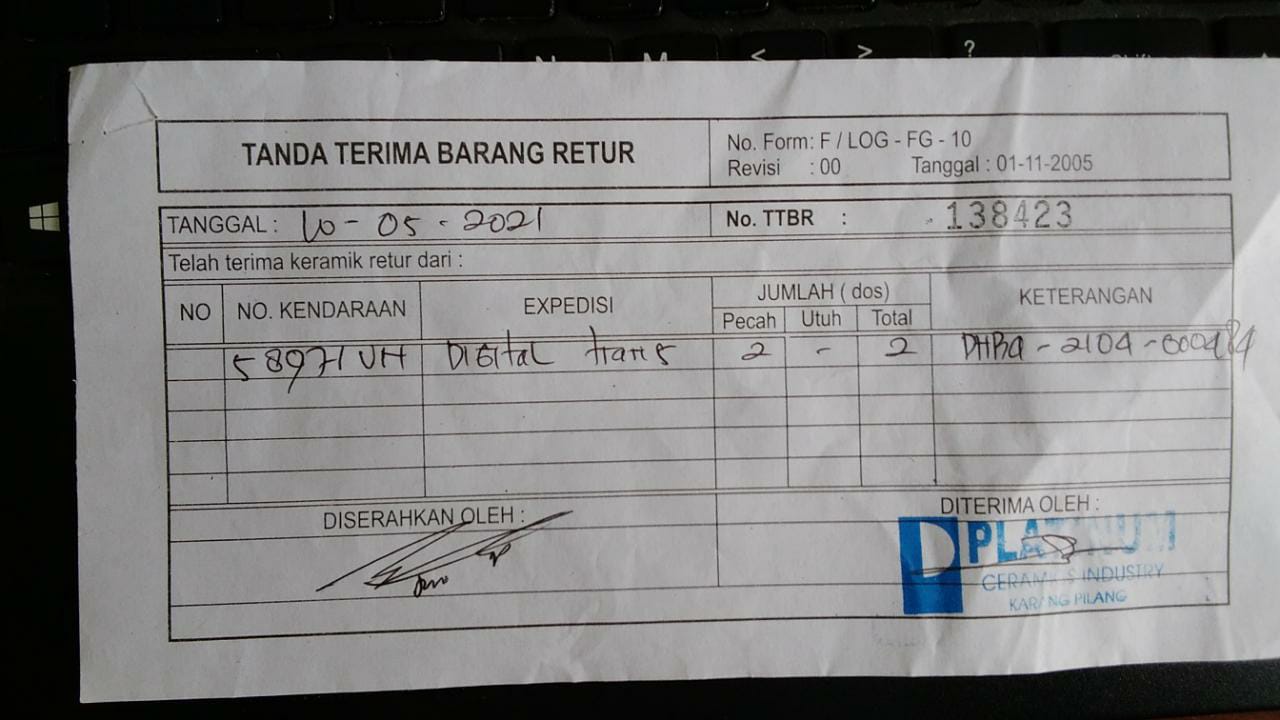 TANDA TERIMA BARANG RETUR
No. Form: F / LOG - FG - 10
Revisi : 00 Tanggal : 01-11-2005
TANGGAL : 10-05-2021
No. TTBR : 138423
Telah terima keramik retur dari :
NO NO. KENDARAAN EXPEDISI JUMLAH ( dos) KETERANGAN
Pecah Utuh Total
Digital trans 2 - 2
DISERAHKAN OLEH : DITERIMA OLEH :
PLATINUM
CERAMICS INDUSTRY
KARANG PILANG